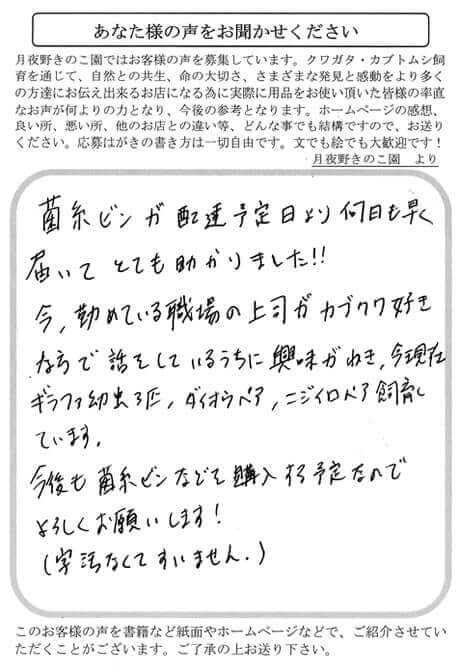 あなた様の声をお聞かせください
月夜野きのこ園ではお客様の声を募集しています。クワガタ・カブトムシ飼
育を通じて、自然との共生、命の大切さ、さまざまな発見と感動をより多く
の方達にお伝え出来るお店になる為に実際に用品をお使い頂いた皆様の率直
なお声が何よりの力となり、今後の参考となります。ホームページの感想、
良い所、悪い所、他のお店との違い等、どんな事でも結構ですので、お送り
ください。応募はがきの書き方は一切自由です。文でも絵でも大歓迎です！
月夜野きのこ園　より
菌糸ビンが配達予定日より何日も早く
届いてとても助かりました!!
今,勤めている職場の上司がカブクワ好き
ならで話をしているうちに興味がわき,今現在
ギラファ幼虫3匹,ダイオウペア,ニジイロペア飼育し
ています。
今後も菌糸ビンなどを購入する予定なので
よろしくお願いします!
(字法なくてすいません.)
このお客様の声を書籍など紙面やホームページなどで、ご紹介させてい
ただくことがございます。ご了承の上お送り下さい。